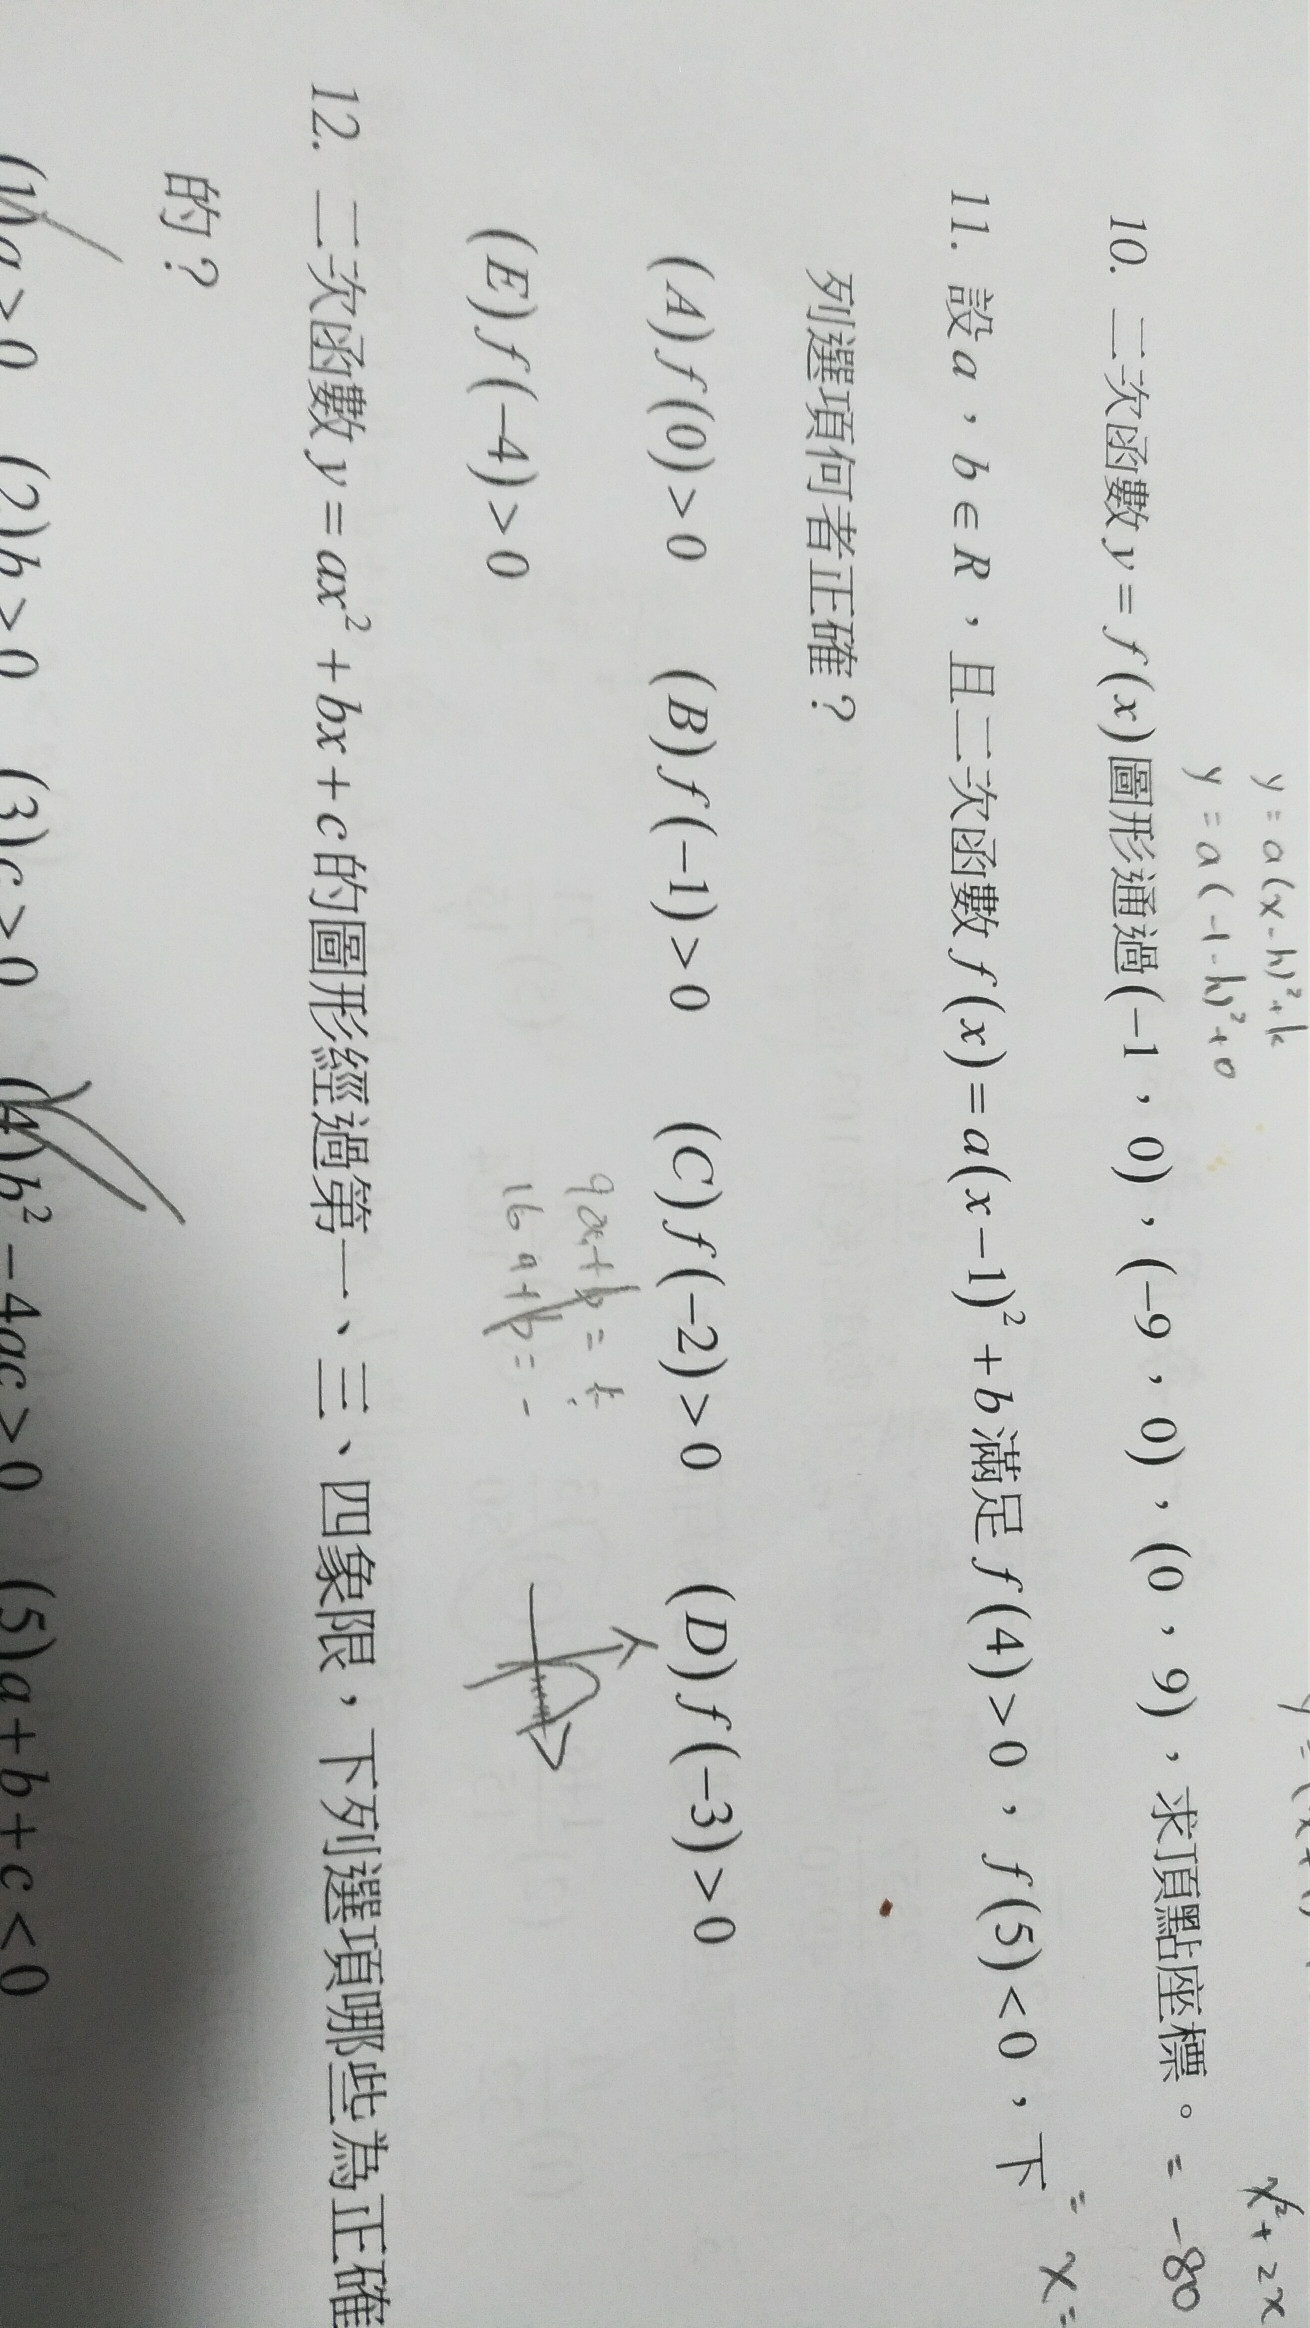 y = a(x-h)²+k
y = a(-1-h)²+0
x²+2x
10. 二次函數 y = f(x) 圖形通過 (-1,0),(-9,0),(0,9),求頂點座標。 = -80
= x =
11. 設 a,b∈R,且二次函數 f(x)=a(x-1)²+b 滿足 f(4)>0,f(5)<0,下
列選項何者正確?
(A) f(0)>0 (B) f(-1)>0 (C) f(-2)>0 (D) f(-3)>0
9a+b=+
(E) f(-4)>0
16a+b=-
12. 二次函數 y=ax²+bx+c 的圖形經過第一、三、四象限,下列選項哪些為正確
的?
(1)a>0 (2)b>0 (3)c>0 (4)b²-4ac>0 (5)a+b+c<0